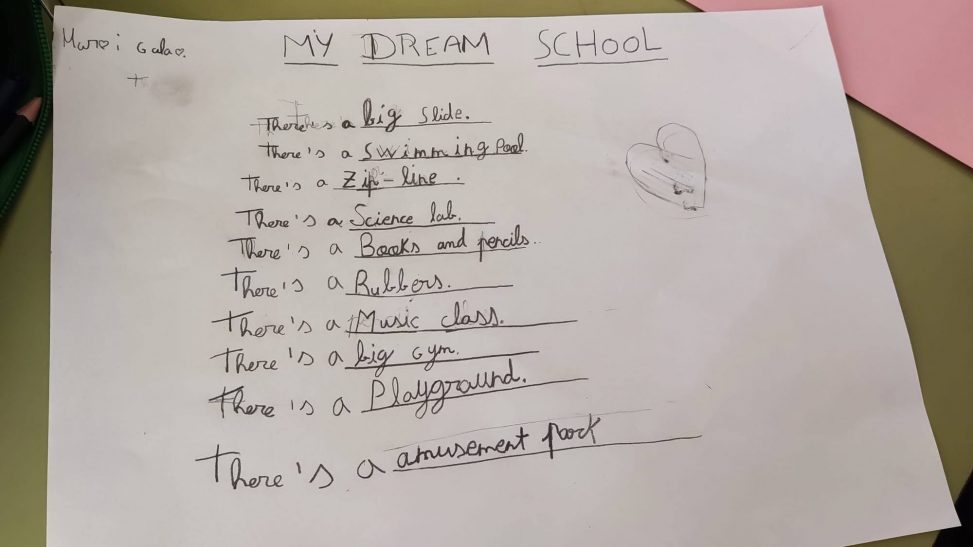 MY DREAM SCHOOL
There's a big slide.
There's a swimming pool.
There's a Zip-line.
There's a Science lab.
There's a Books and pencils.
There's a Rubbers.
There's a Music class.
There's a big gym.
There is a Playground.
There's a amusement park